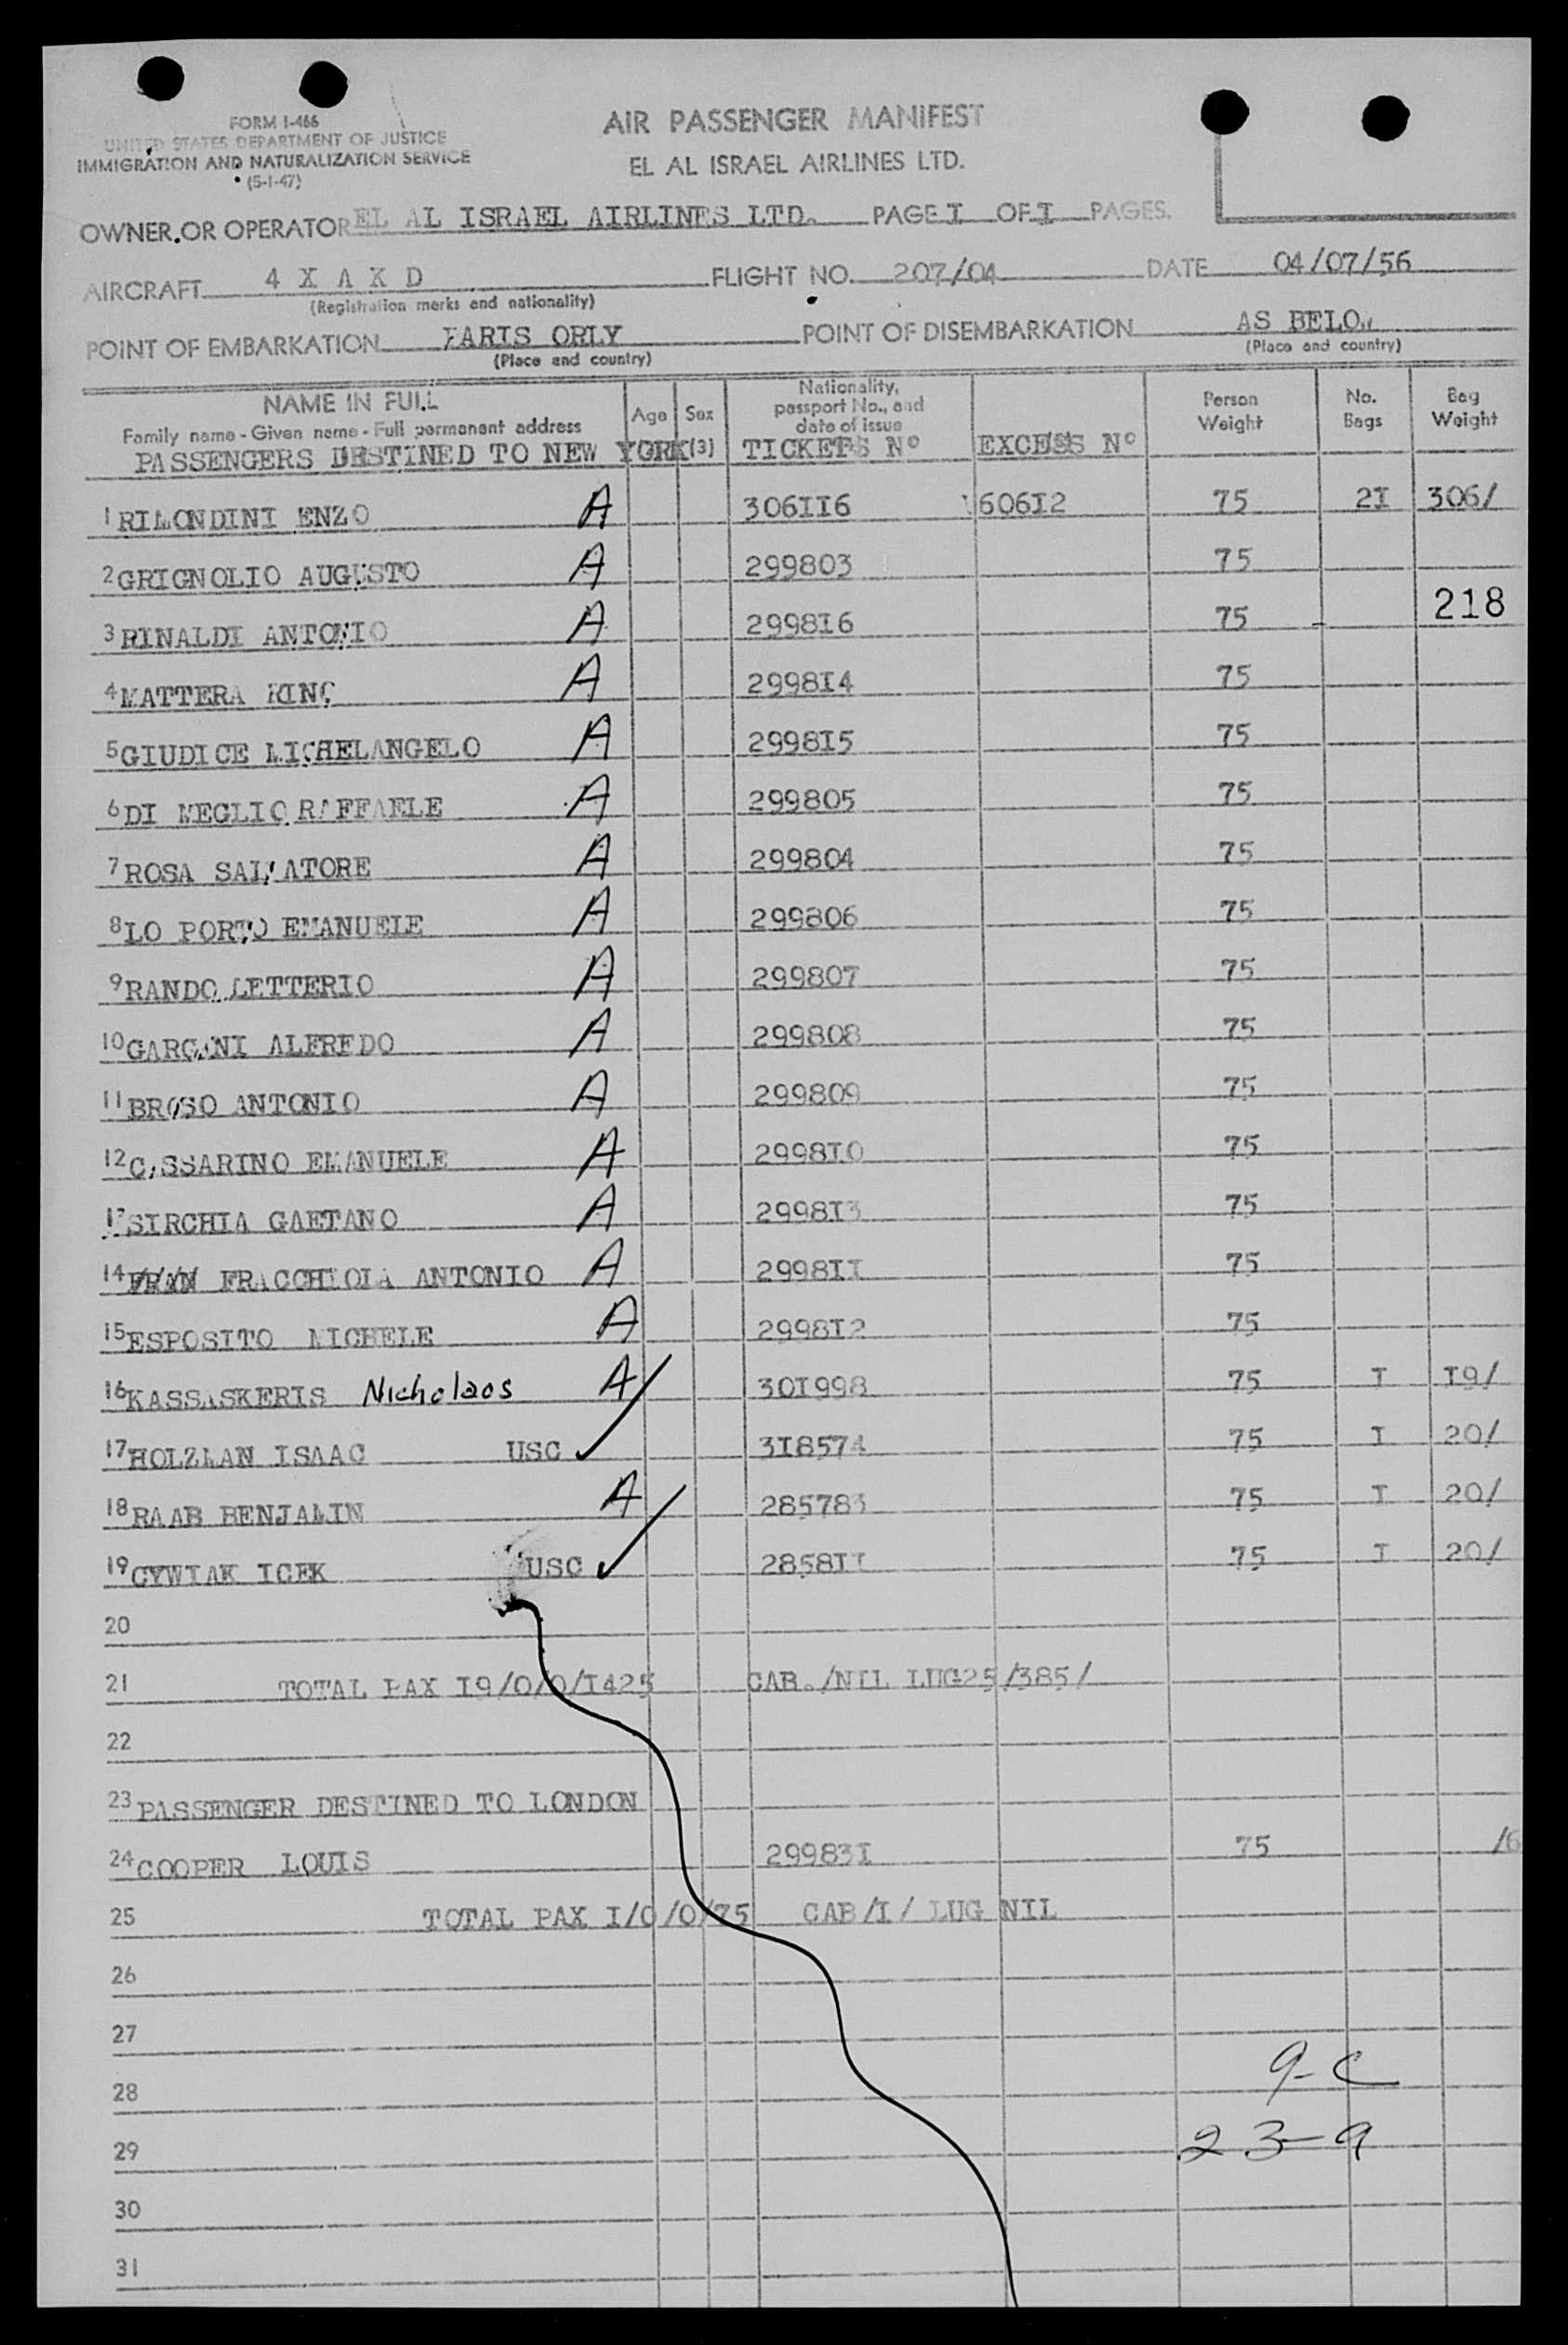 FORM I-466
UNITED STATES DEPARTMENT OF JUSTICE
IMMIGRATION AND NATURALIZATION SERVICE
(5-1-47)
AIR PASSENGER MANIFEST
EL AL ISRAEL AIRLINES LTD.
OWNER OR OPERATOR EL AL ISRAEL AIRLINES LTD. PAGE I OF I PAGES.
AIRCRAFT 4 X A K D FLIGHT NO. 207/04 DATE 04/07/56
(Registration marks and nationality)
POINT OF EMBARKATION PARIS ORLY POINT OF DISEMBARKATION AS BELOW
(Place and country) (Place and country)
NAME IN FULL Age Sex Nationality, passport No., and date of issue Person Weight No. Bags Bag Weight
Family name - Given name - Full permanent address
PASSENGERS DESTINED TO NEW YORK (3) TICKETS N° EXCESS N°
1 RIMONDINI ENZO A 306II6 606I2 75 2I 306/
2 GRIGNOLIO AUGUSTO A 299803 75
3 RINALDI ANTONIO A 2998I6 75 218
4 MATTERA A 2998I4 75
5 GIUDICE MICHELANGELO A 2998I5 75
6 DI MEGLIO RAFFAELE A 299805 75
7 ROSA SALVATORE A 299804 75
8 LO PORTO EMANUELE A 299806 75
9 RANDO LETTERIO A 299807 75
10 GARGANI ALFREDO A 299808 75
11 BROSO ANTONIO A 299809 75
12 CASSARINO EMANUELE A 2998I0 75
13 SIRCHIA GAETANO A 2998I3 75
14 FRAN FRACCHIOLA ANTONIO A 2998II 75
15 ESPOSITO MICHELE A 2998I2 75
16 KASSASKERIS Nicholaos A 30I998 75 I I9/
17 HOLZMAN ISAAC USC ✓ 3I8574 75 I 20/
18 RAAB BENJAMIN A 285783 75 I 20/
19 CYWIAK ICEK USC ✓ 2858II 75 I 20/
20
21 TOTAL PAX I9/0/0/I425 CAB./NIL LUG25/385/
22
23 PASSENGER DESTINED TO LONDON
24 COOPER LOUIS 29983I 75 /6
25 TOTAL PAX I/0/0/75 CAB/I/ LUG NIL
26
27
28 9-C
29 23-9
30
31